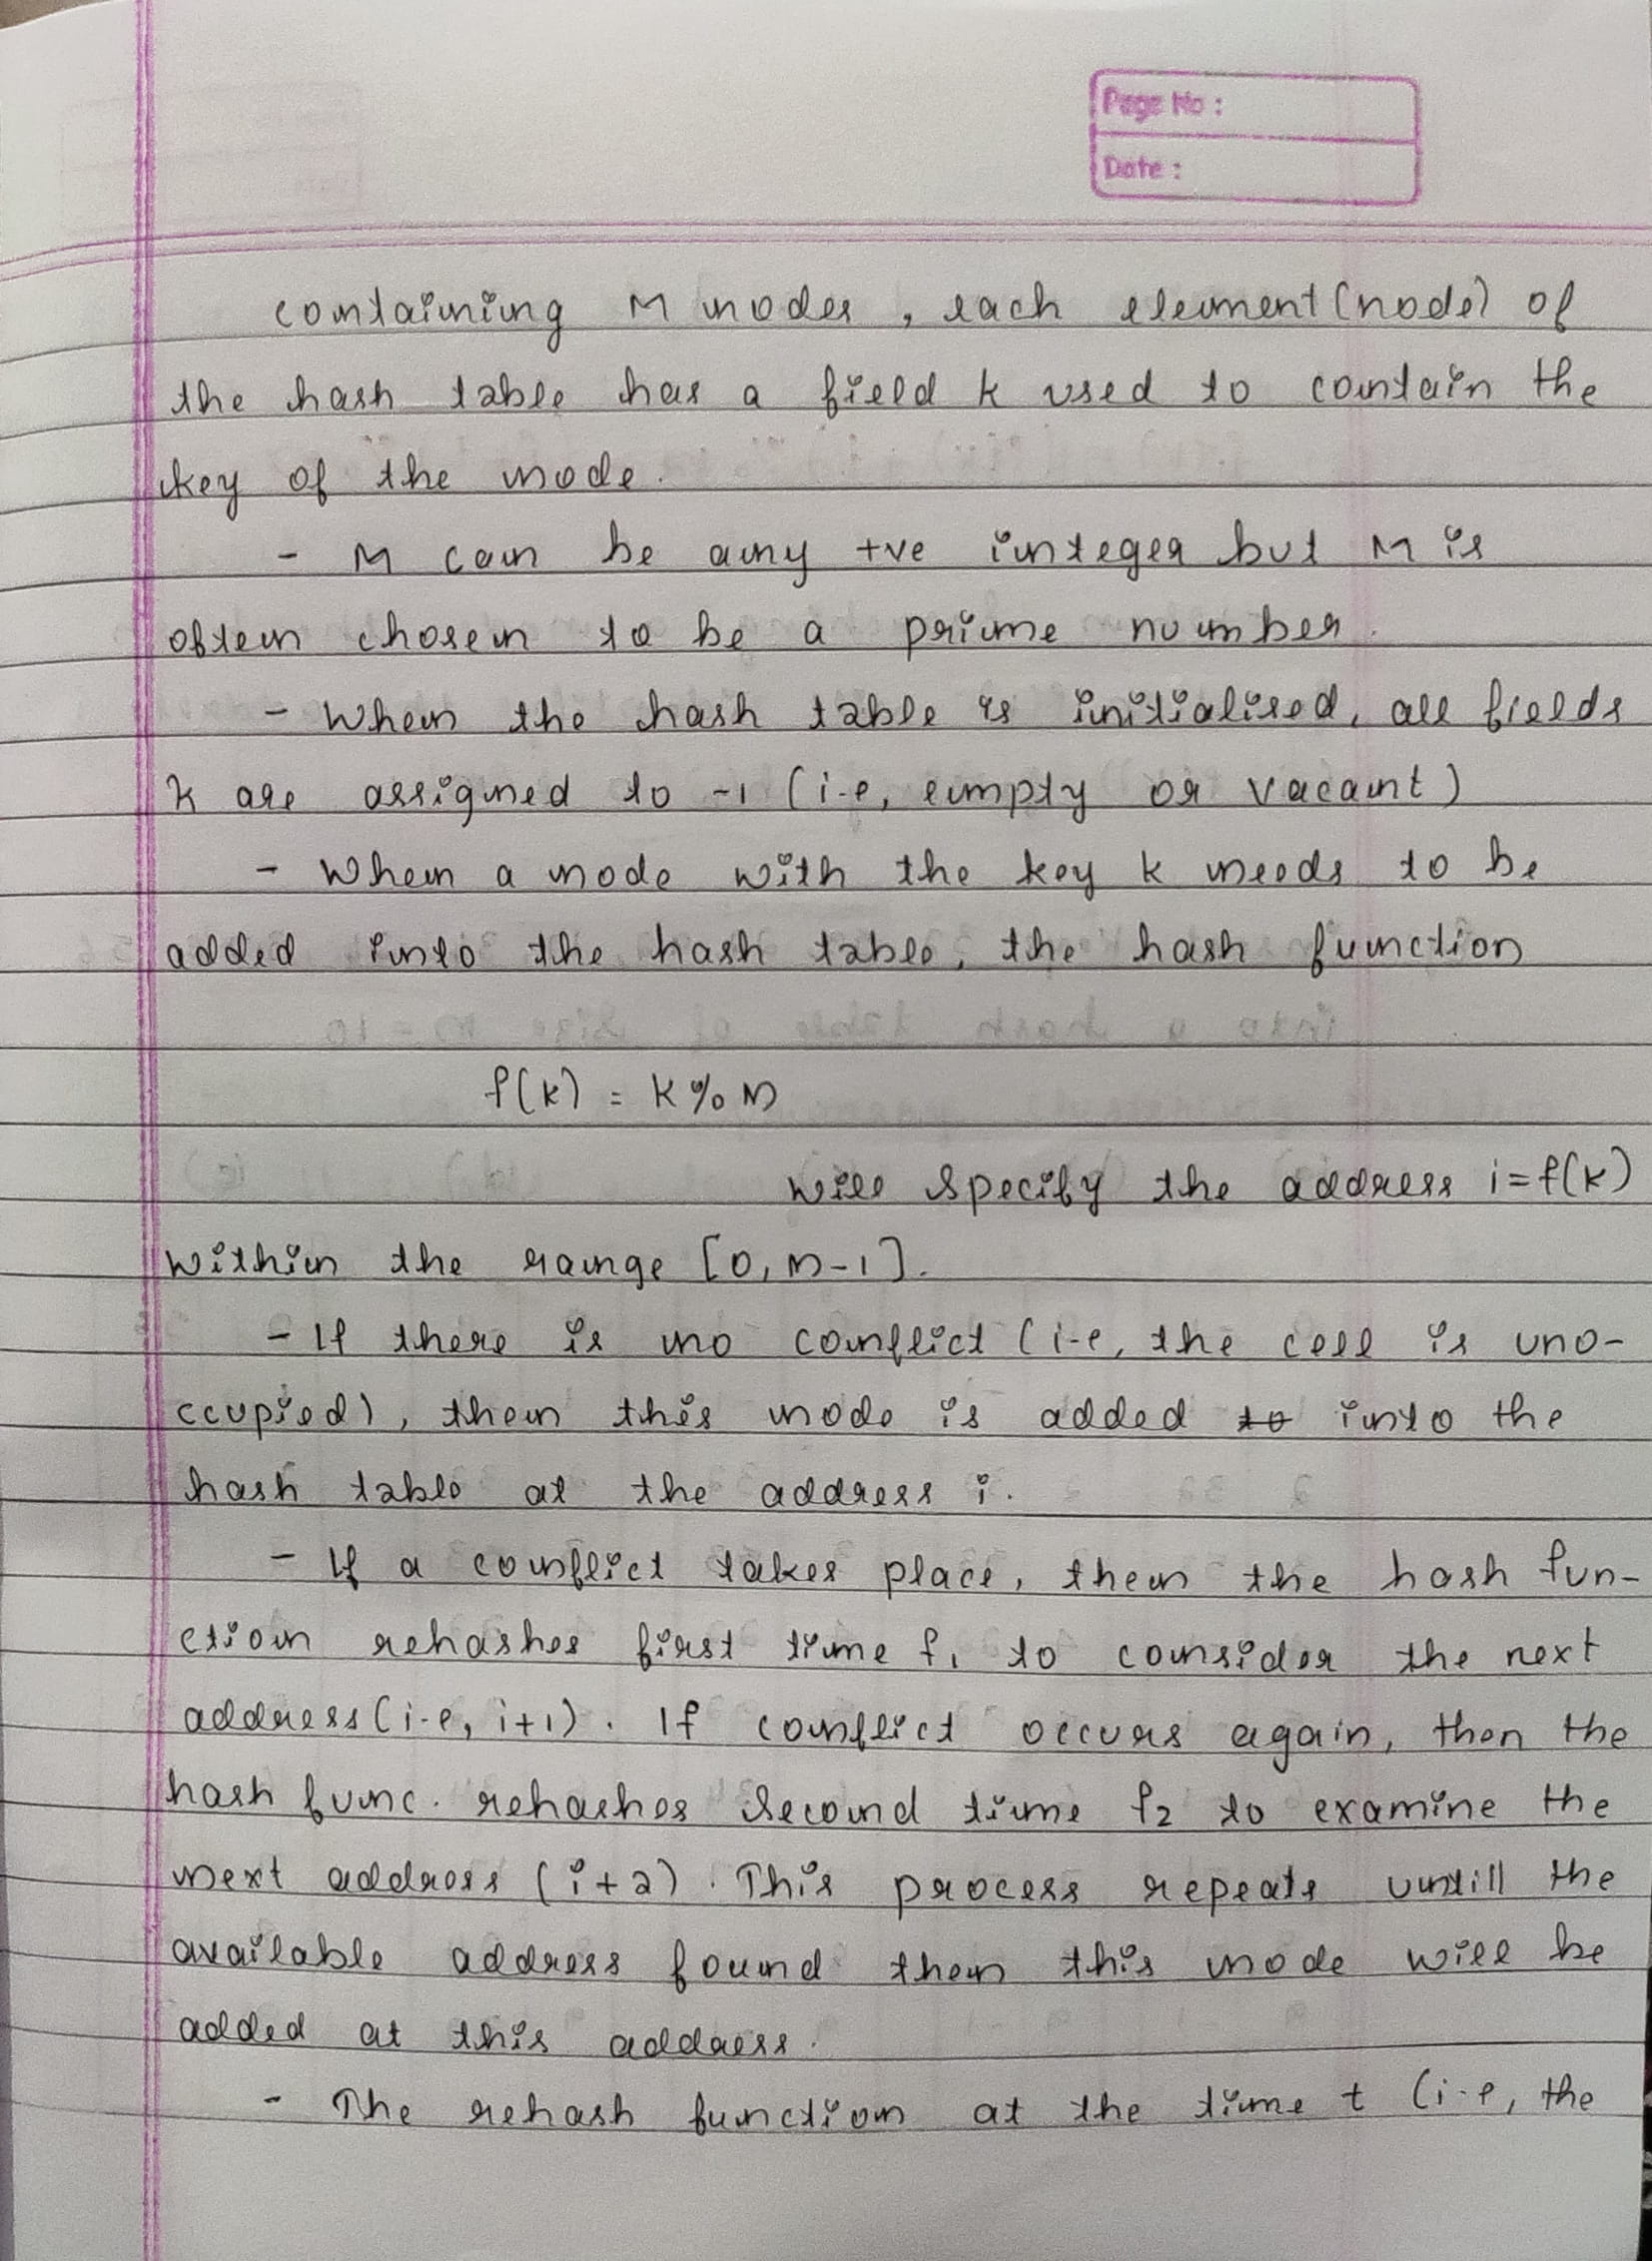 Page No :
Date :
containing M nodes, each element (node) of
the hash table has a field k used to contain the
key of the node.
- M can be any +ve integer but M is
often chosen to be a prime number.
- When the hash table is initialised, all fields
k are assigned to -1 (i.e, empty or vacant)
- When a node with the key k needs to be
added into the hash table, the hash function
f(k) = k % M
will specify the address i=f(k)
within the range [0, M-1].
- If there is no conflict (i.e, the cell is uno-
ccupied), then this node is added to into the
hash table at the address i.
- If a conflict takes place, then the hash fun-
ction rehashes first time f1 to consider the next
address (i.e, i+1). If conflict occurs again, then the
hash func. rehashes second time f2 to examine the
next address (i+2). This process repeats untill the
available address found then this node will be
added at this address.
- The rehash function at the time t (i.e, the